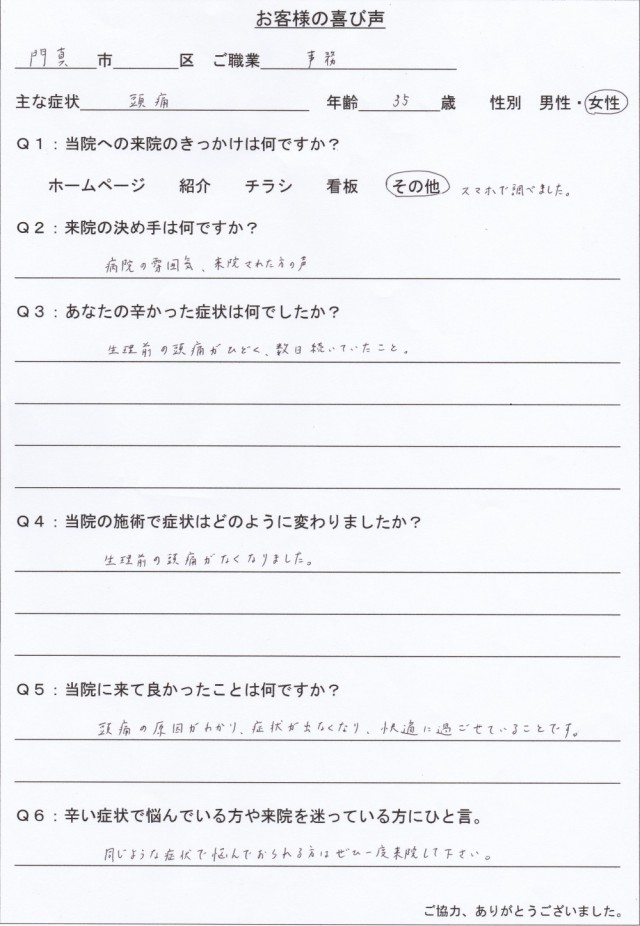 お客様の喜び声
門真市 区 ご職業 事務
主な症状 頭痛 年齢 35 歳 性別 男性・女性
Q1：当院への来院のきっかけは何ですか？
ホームページ 紹介 チラシ 看板 その他 スマホで調べました。
Q2：来院の決め手は何ですか？
病院の雰囲気、来院された方の声
Q3：あなたの辛かった症状は何でしたか？
生理前の頭痛がひどく、数日続いていたこと。
Q4：当院の施術で症状はどのように変わりましたか？
生理前の頭痛がなくなりました。
Q5：当院に来て良かったことは何ですか？
頭痛の原因がわかり、症状が出なくなり、快適に過ごせていることです。
Q6：辛い症状で悩んでいる方や来院を迷っている方にひと言。
同じような症状で悩んでおられる方はぜひ一度来院して下さい。
ご協力、ありがとうございました。